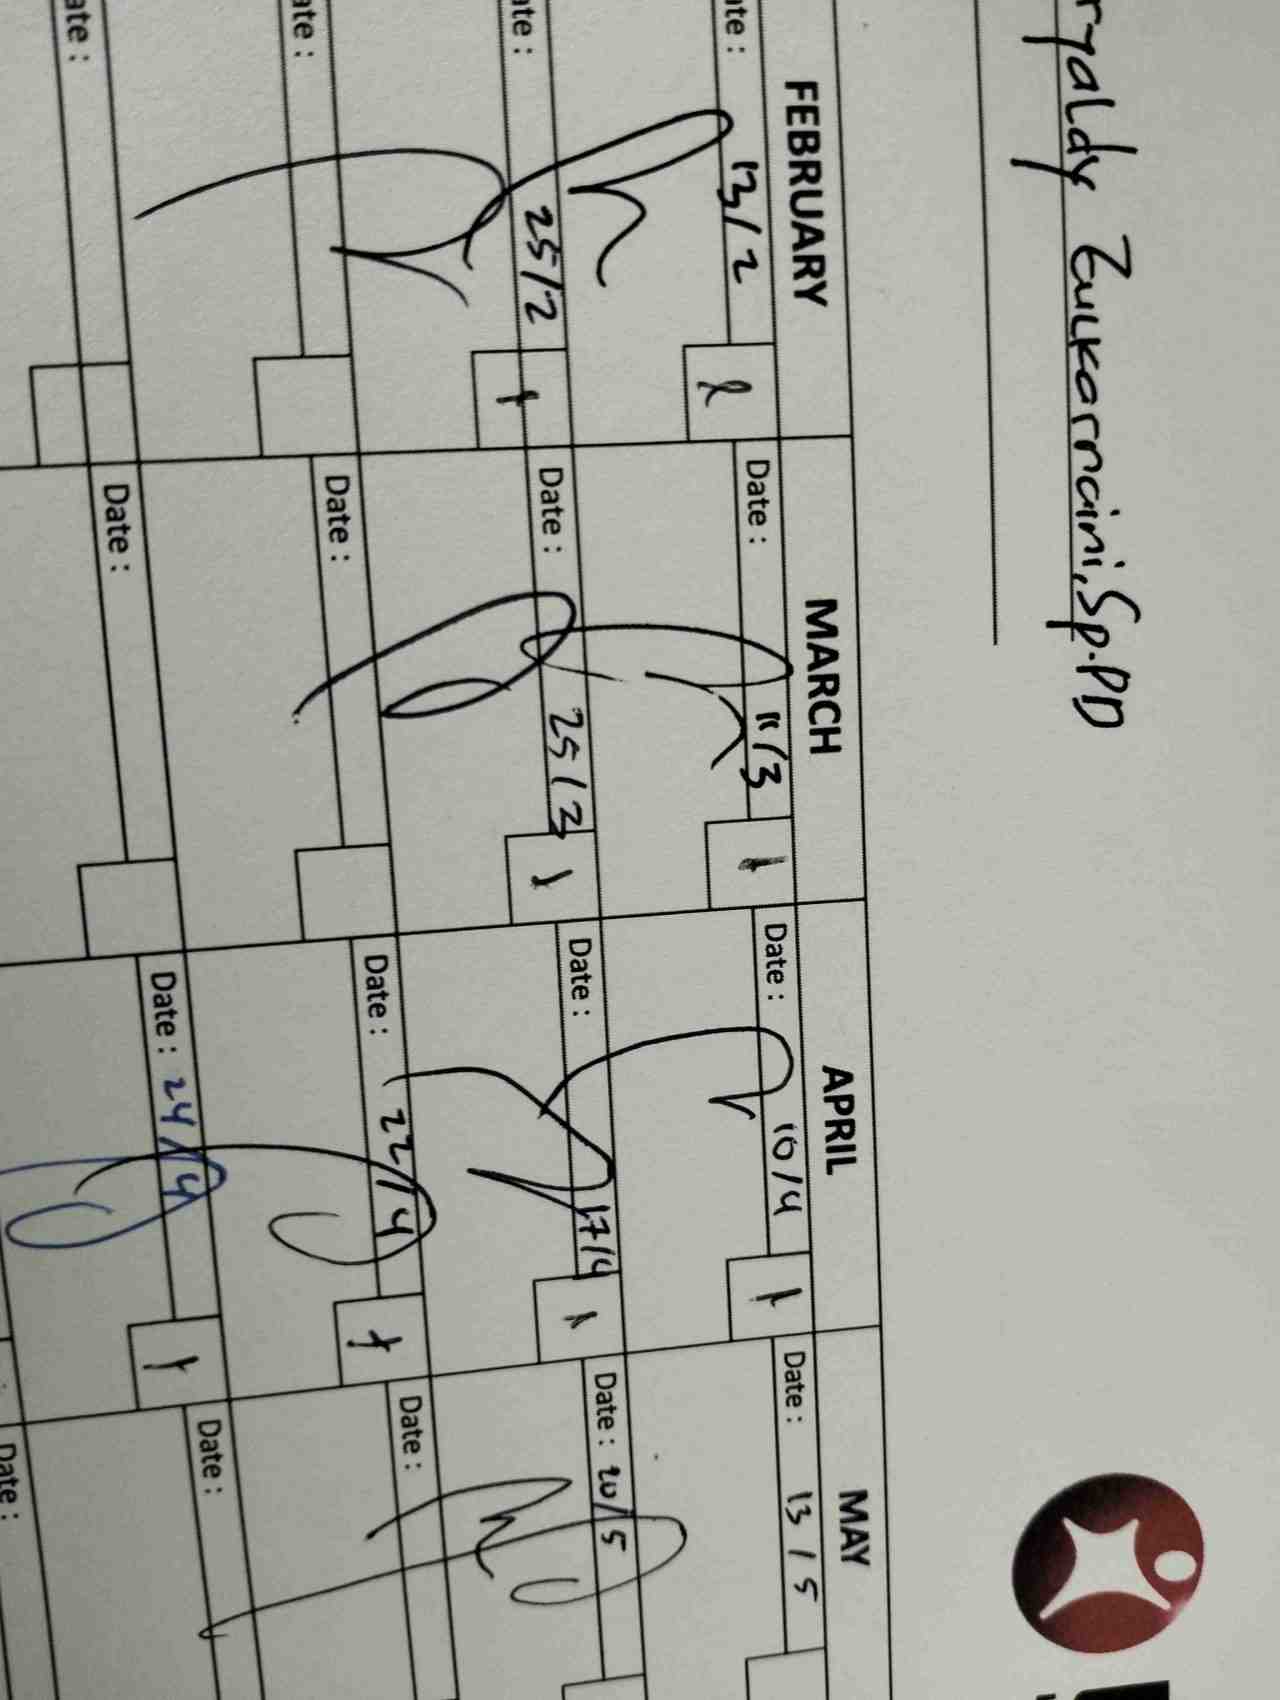 ryaldy Zulkarnaini, Sp.PD
FEBRUARY MARCH APRIL MAY
ate : 13/2 Date : 11/3 Date : 10/4 Date : 13/5
1 1
ate : 25/2 Date : 25/3 Date : 17/4 Date : 20/5
1 1 1
ate : Date : Date : 22/4 Date :
1
ate : Date : Date : 24/4 Date :
1
Date :